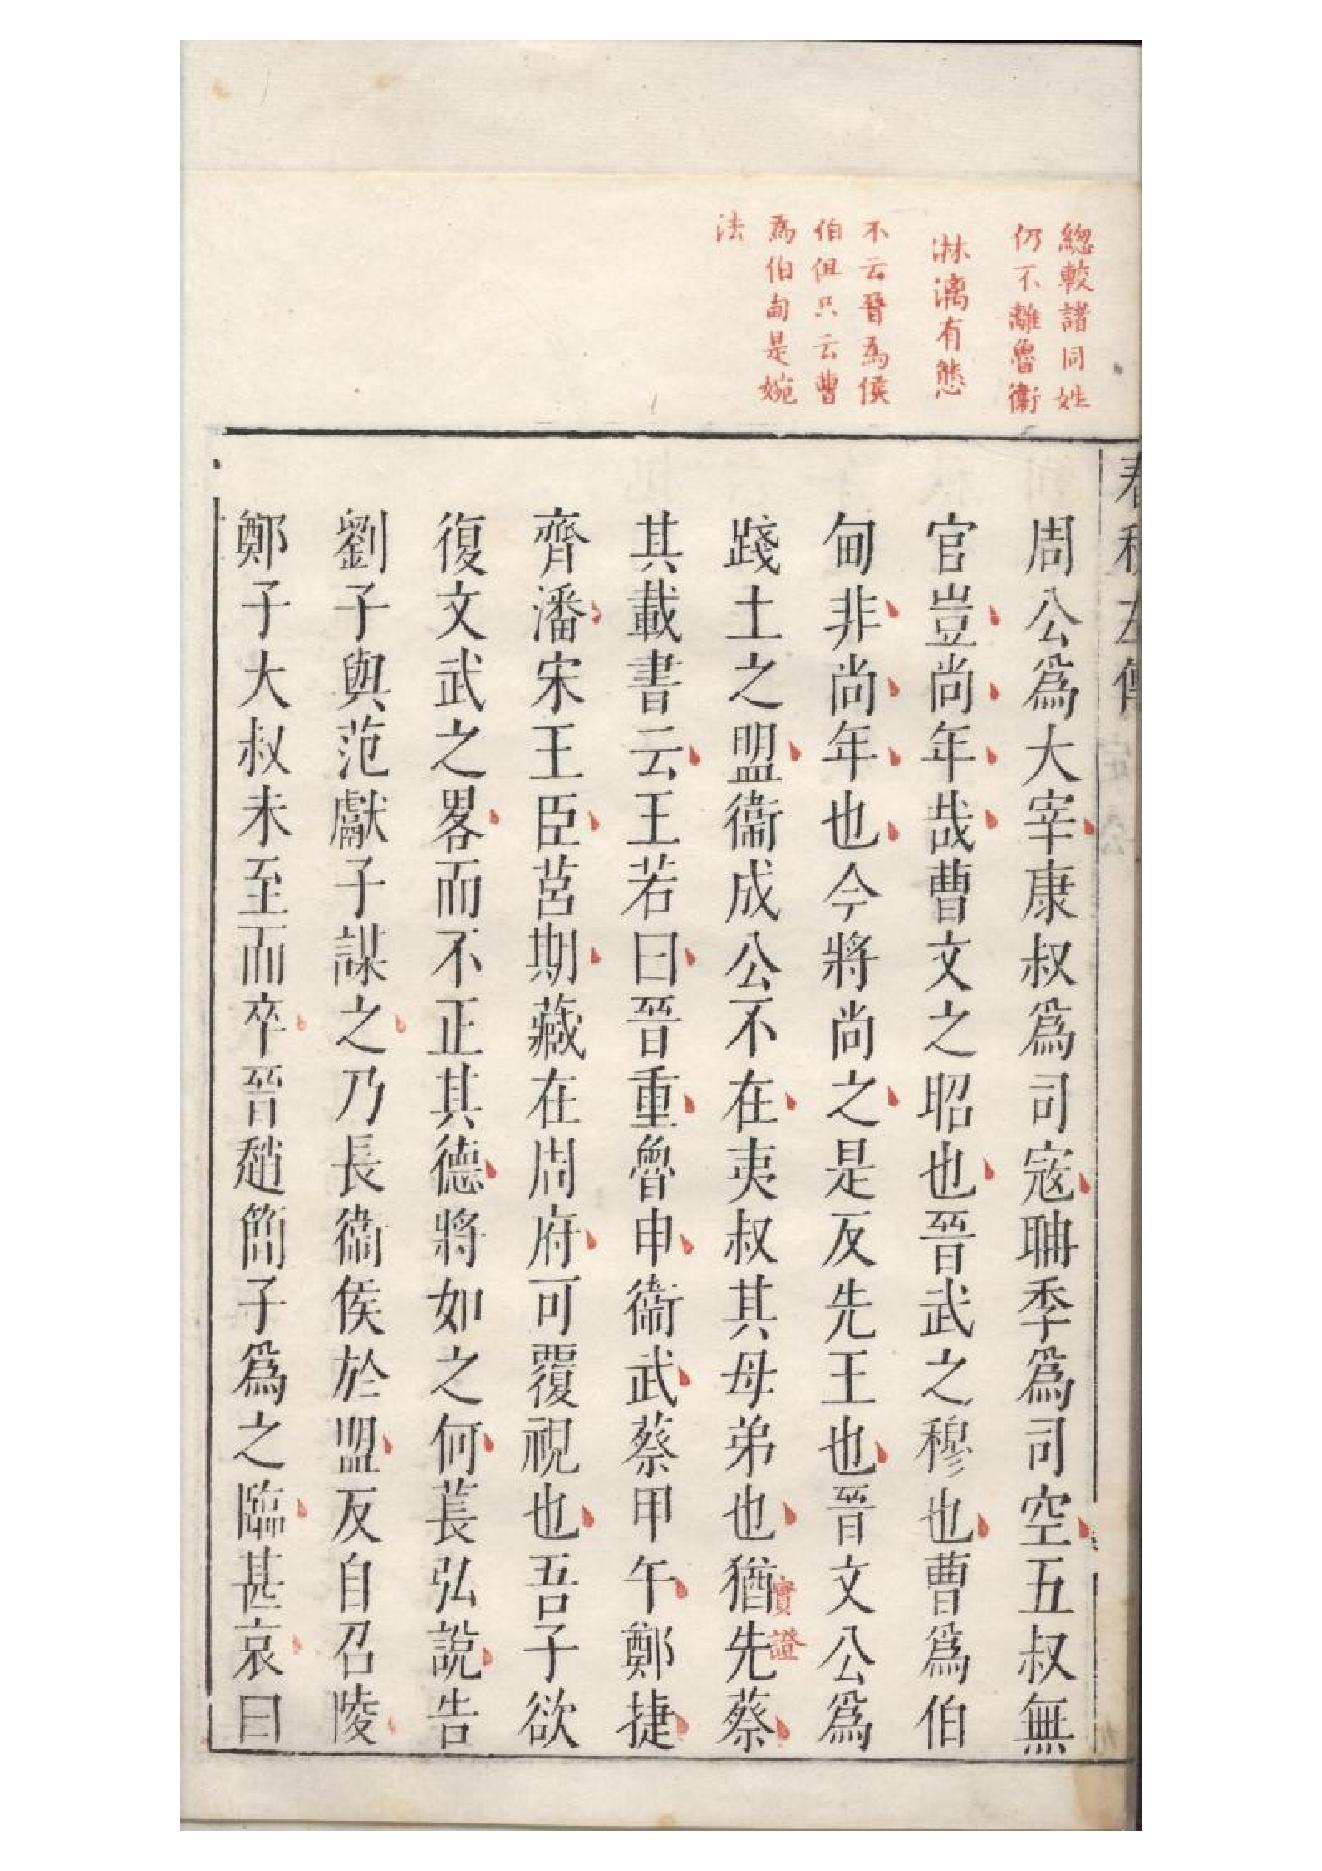 總較諸同姓
仍不離魯衛
淋漓有態
不云晉為侯
伯但只云曹
為伯甸是婉
法
春秋左傳
周公爲大宰康叔爲司寇聃季爲司空五叔無
官豈尚年哉曹文之昭也晉武之穆也曹爲伯
甸非尚年也今將尚之是反先王也晉文公爲
踐土之盟衞成公不在夷叔其母弟也猶先蔡
實證
其載書云王若曰晉重魯申衞武蔡甲午鄭捷
齊潘宋王臣莒期藏在周府可覆視也吾子欲
復文武之畧而不正其德將如之何萇弘說告
劉子與范獻子謀之乃長衞侯於盟反自召陵
鄭子大叔未至而卒晉趙簡子爲之臨甚哀曰